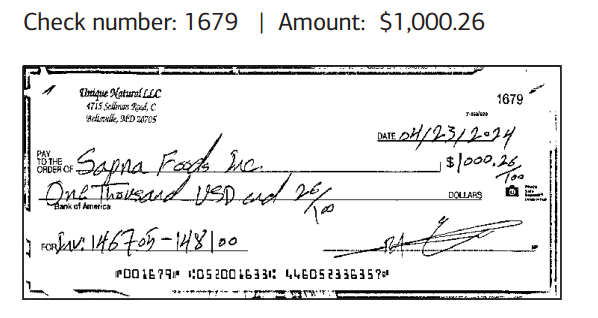 Check number: 1679 | Amount: $1,000.26
Unique Natural LLC
4715 Sellman Road, C
Beltsville, MD 20705
1679
DATE 04/23/2024
PAY TO THE ORDER OF Sapna Foods Inc. $1000.26/100
One Thousand USD and 26/100 DOLLARS
Bank of America
FOR Inv: 146705-148100
⑈001679⑈ ⑆052001633⑆ 446052336357⑈